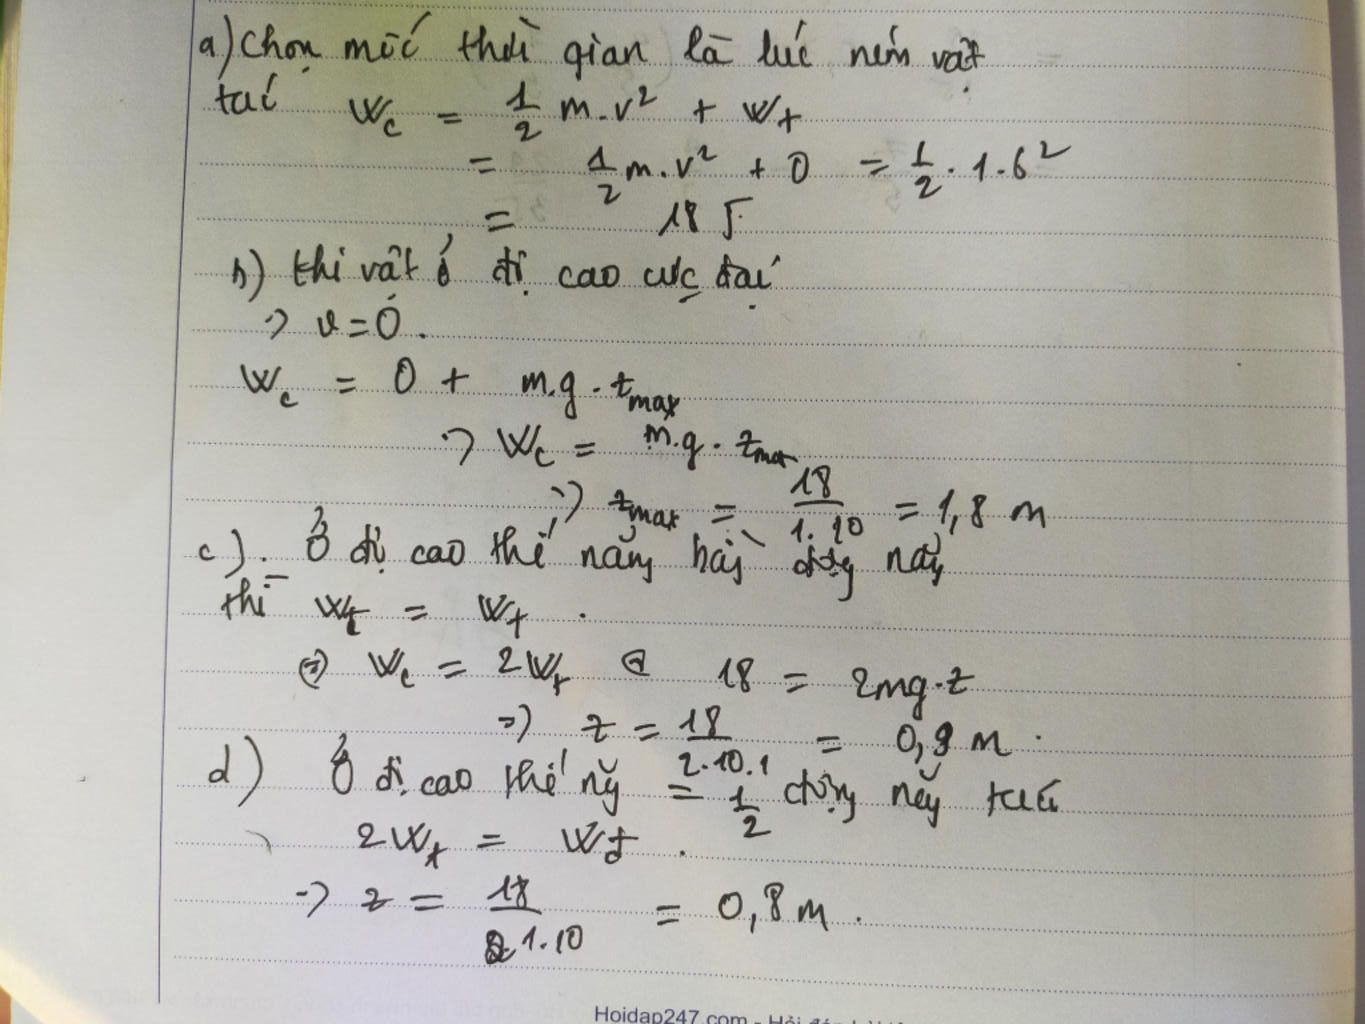 a) Chọn mốc thời gian là lúc ném vật
tại W_c = 1/2 m.v² + W_t
= 1/2 m.v² + 0 = 1/2 . 1.6²
= 18 J.
b) khi vật ở độ cao cực đại
=> v = 0.
W_c = 0 + m.g.z_max
=> W_c = m.g.z_max
=> z_max = 18/1.10 = 1,8 m
c). Ở độ cao thế năng bằng động năng
thì W_đ = W_t.
<=> W_c = 2W_t <=> 18 = 2mg.z
=> z = 18/2.10.1 = 0,9 m.
d) Ở độ cao thế năng = 1/2 động năng
2W_t = W_đ.
=> z = 18/1.10 = 0,8 m.
Hoidap247.com -